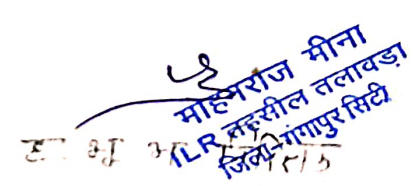 मोहनराज मीना
ILR तहसील तलावड़ा
जिला-गंगापुर सिटी
ह भू अ